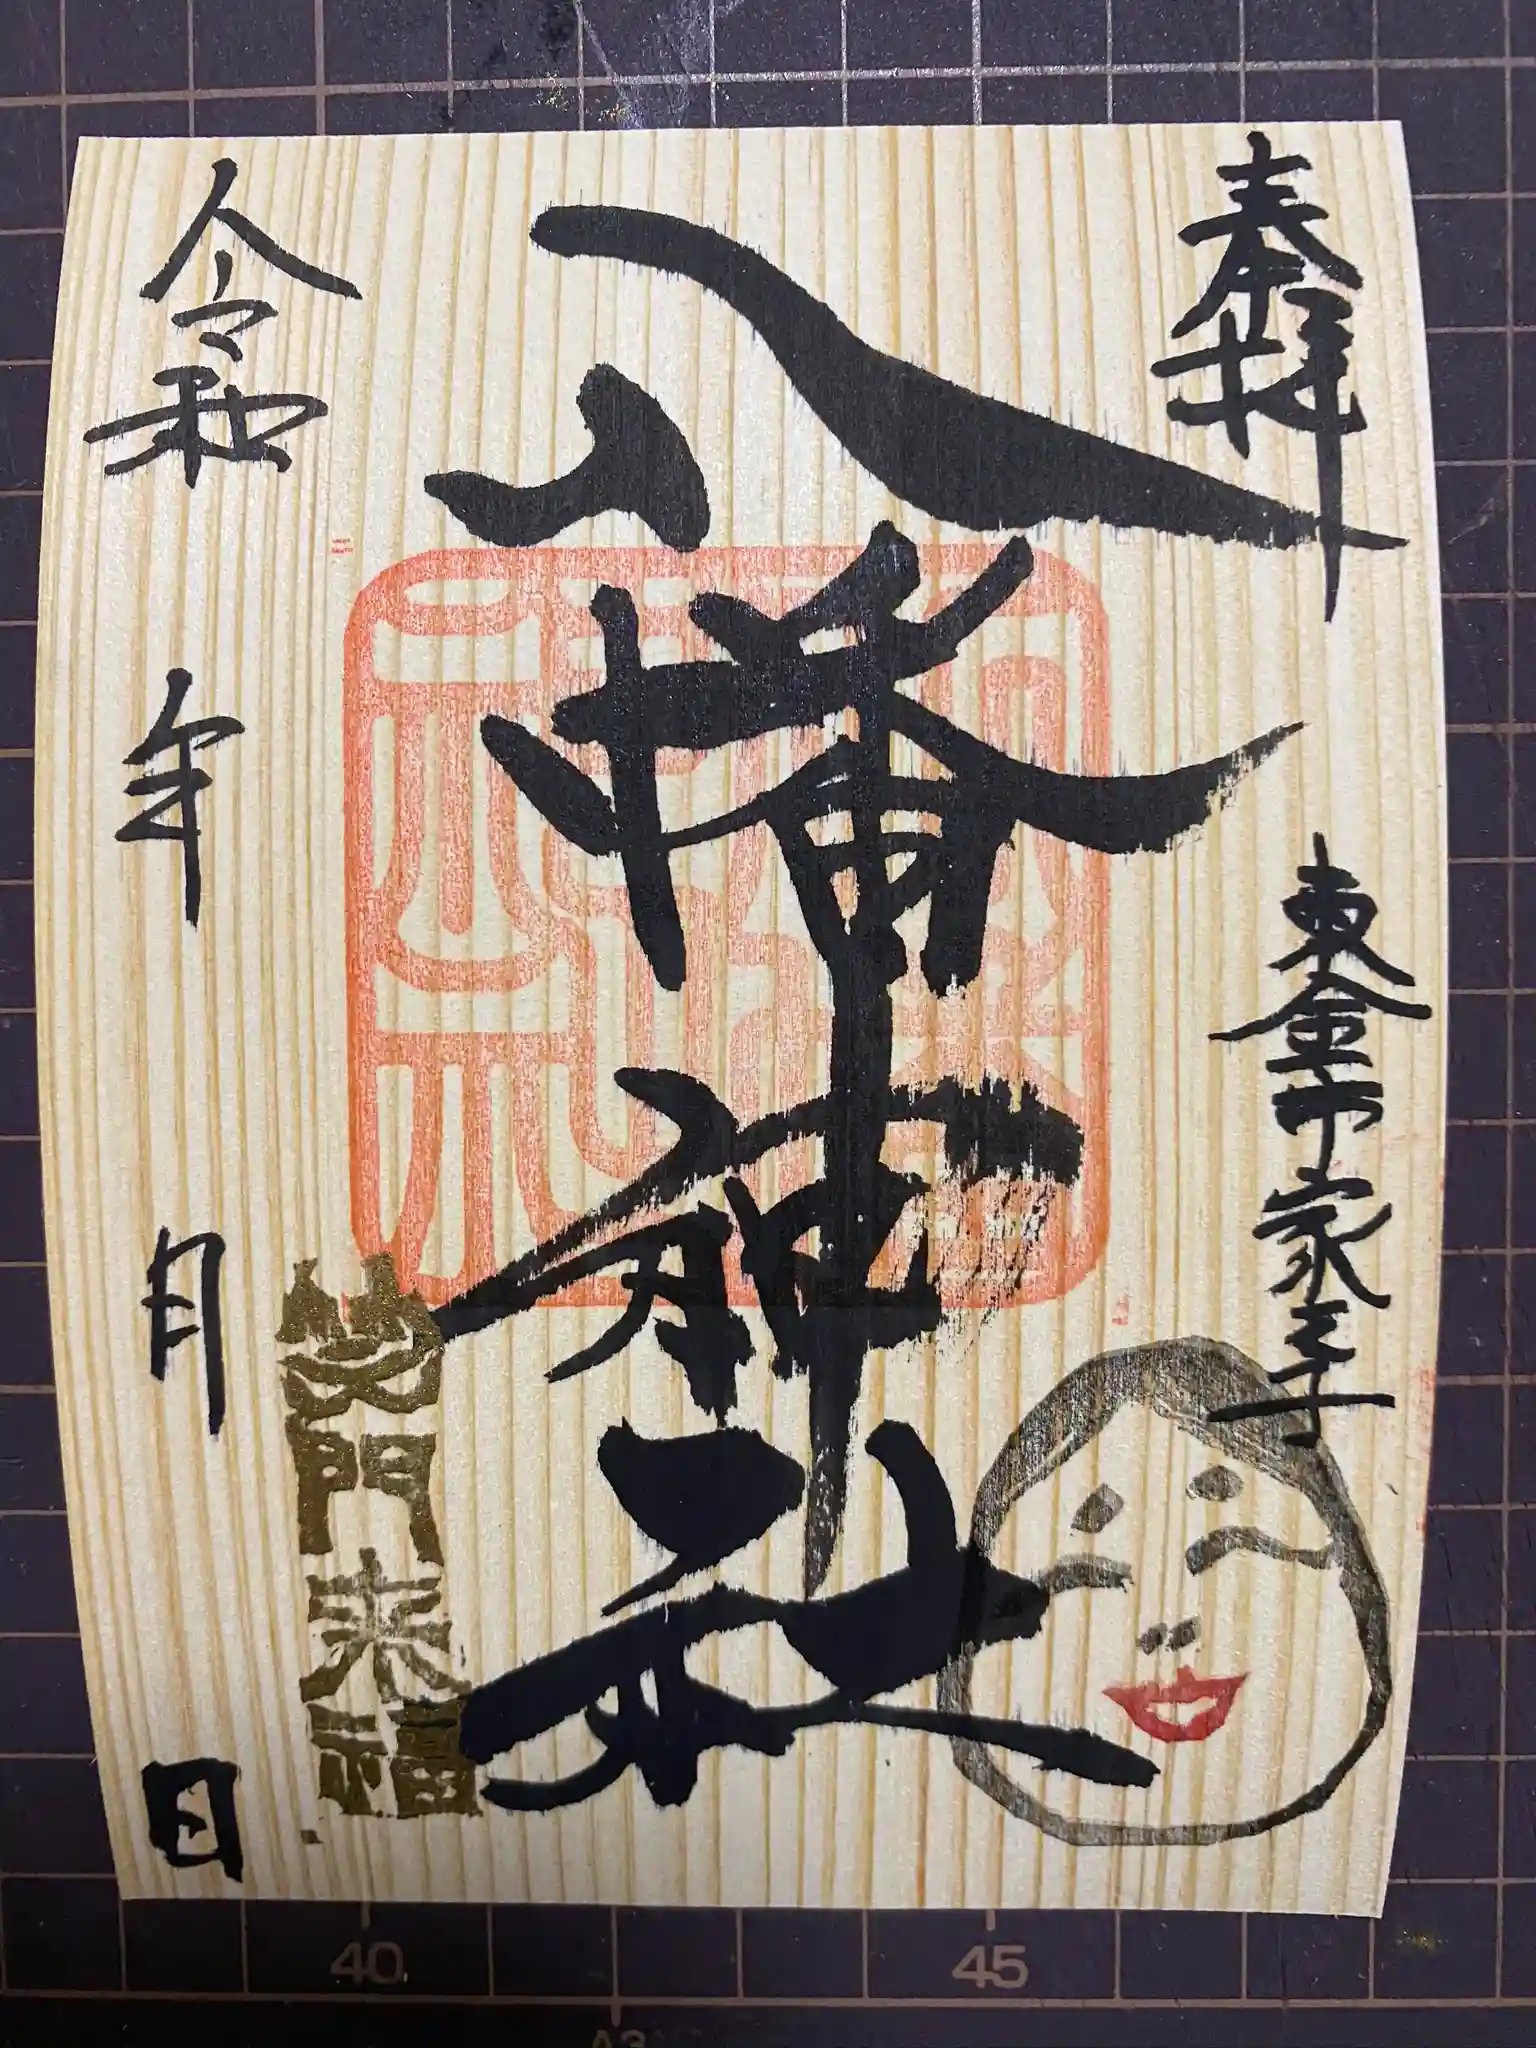 奉拝
東金市家之子
八幡神社
令和　年　月　日
笑門来福
40
45